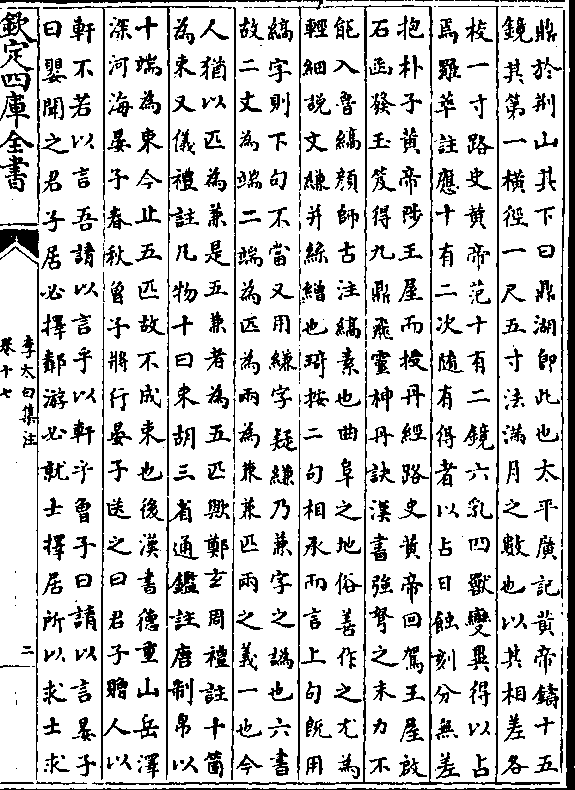 鼎於荆山其下曰鼎湖即此也太平廣記黄帝鑄十五
鏡其第一横徑一尺五寸法滿月之數也以其相差各
校一寸路史黄帝范十有二鏡六乳四獸變異得以占
焉羅苹註應十有二次隨有得者以占日蝕刻分無差
抱朴子黄帝陟王屋而授丹經路史黄帝回駕王屋啟
石函發玉笈得九鼎飛靈神丹訣漢書強弩之末力不
能入魯縞顔師古注縞素也曲阜之地俗善作之尤為
輕細説文縑并絲繒也琦按二句相承而言上句既用
縞字則下句不當又用縑字疑縑乃兼字之譌也六書
故二丈為端二端為匹為兩為兼兼匹兩之義一也今
人猶以匹為兼是五兼者為五匹歟鄭玄周禮註十箇
為束又儀禮註凡物十曰束胡三省通鑑註唐制帛以
十端為束今止五匹故不成束也後漢書德重山岳澤
深河海晏子春秋曾子將行晏子送之曰君子贈人以
軒不若以言吾請以言乎以軒乎曾子曰請以言晏子
曰嬰聞之君子居必擇鄰游必就士擇居所以求士求
欽定四庫全書
李太白集注
卷十七
二